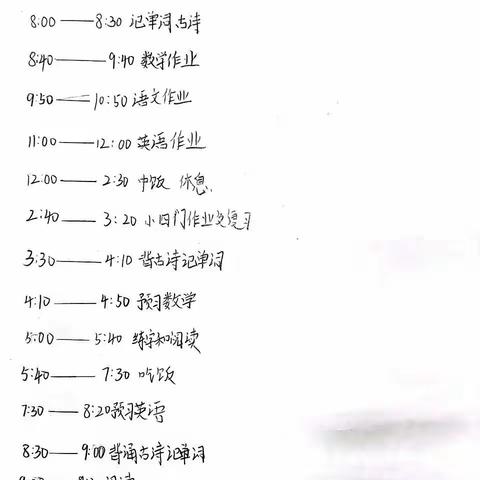 8:00——8:30 记单词古诗
8:40——9:40 数学作业
9:50——10:50 语文作业
11:00——12:00 英语作业
12:00——2:30 中饭 休息
2:40——3:20 小四门作业及复习
3:30——4:10 背古诗记单词
4:10——4:50 预习数学
5:00——5:40 练字和阅读
5:40——7:30 吃饭
7:30——8:20预习英语
8:30——9:00背诵古诗记单词